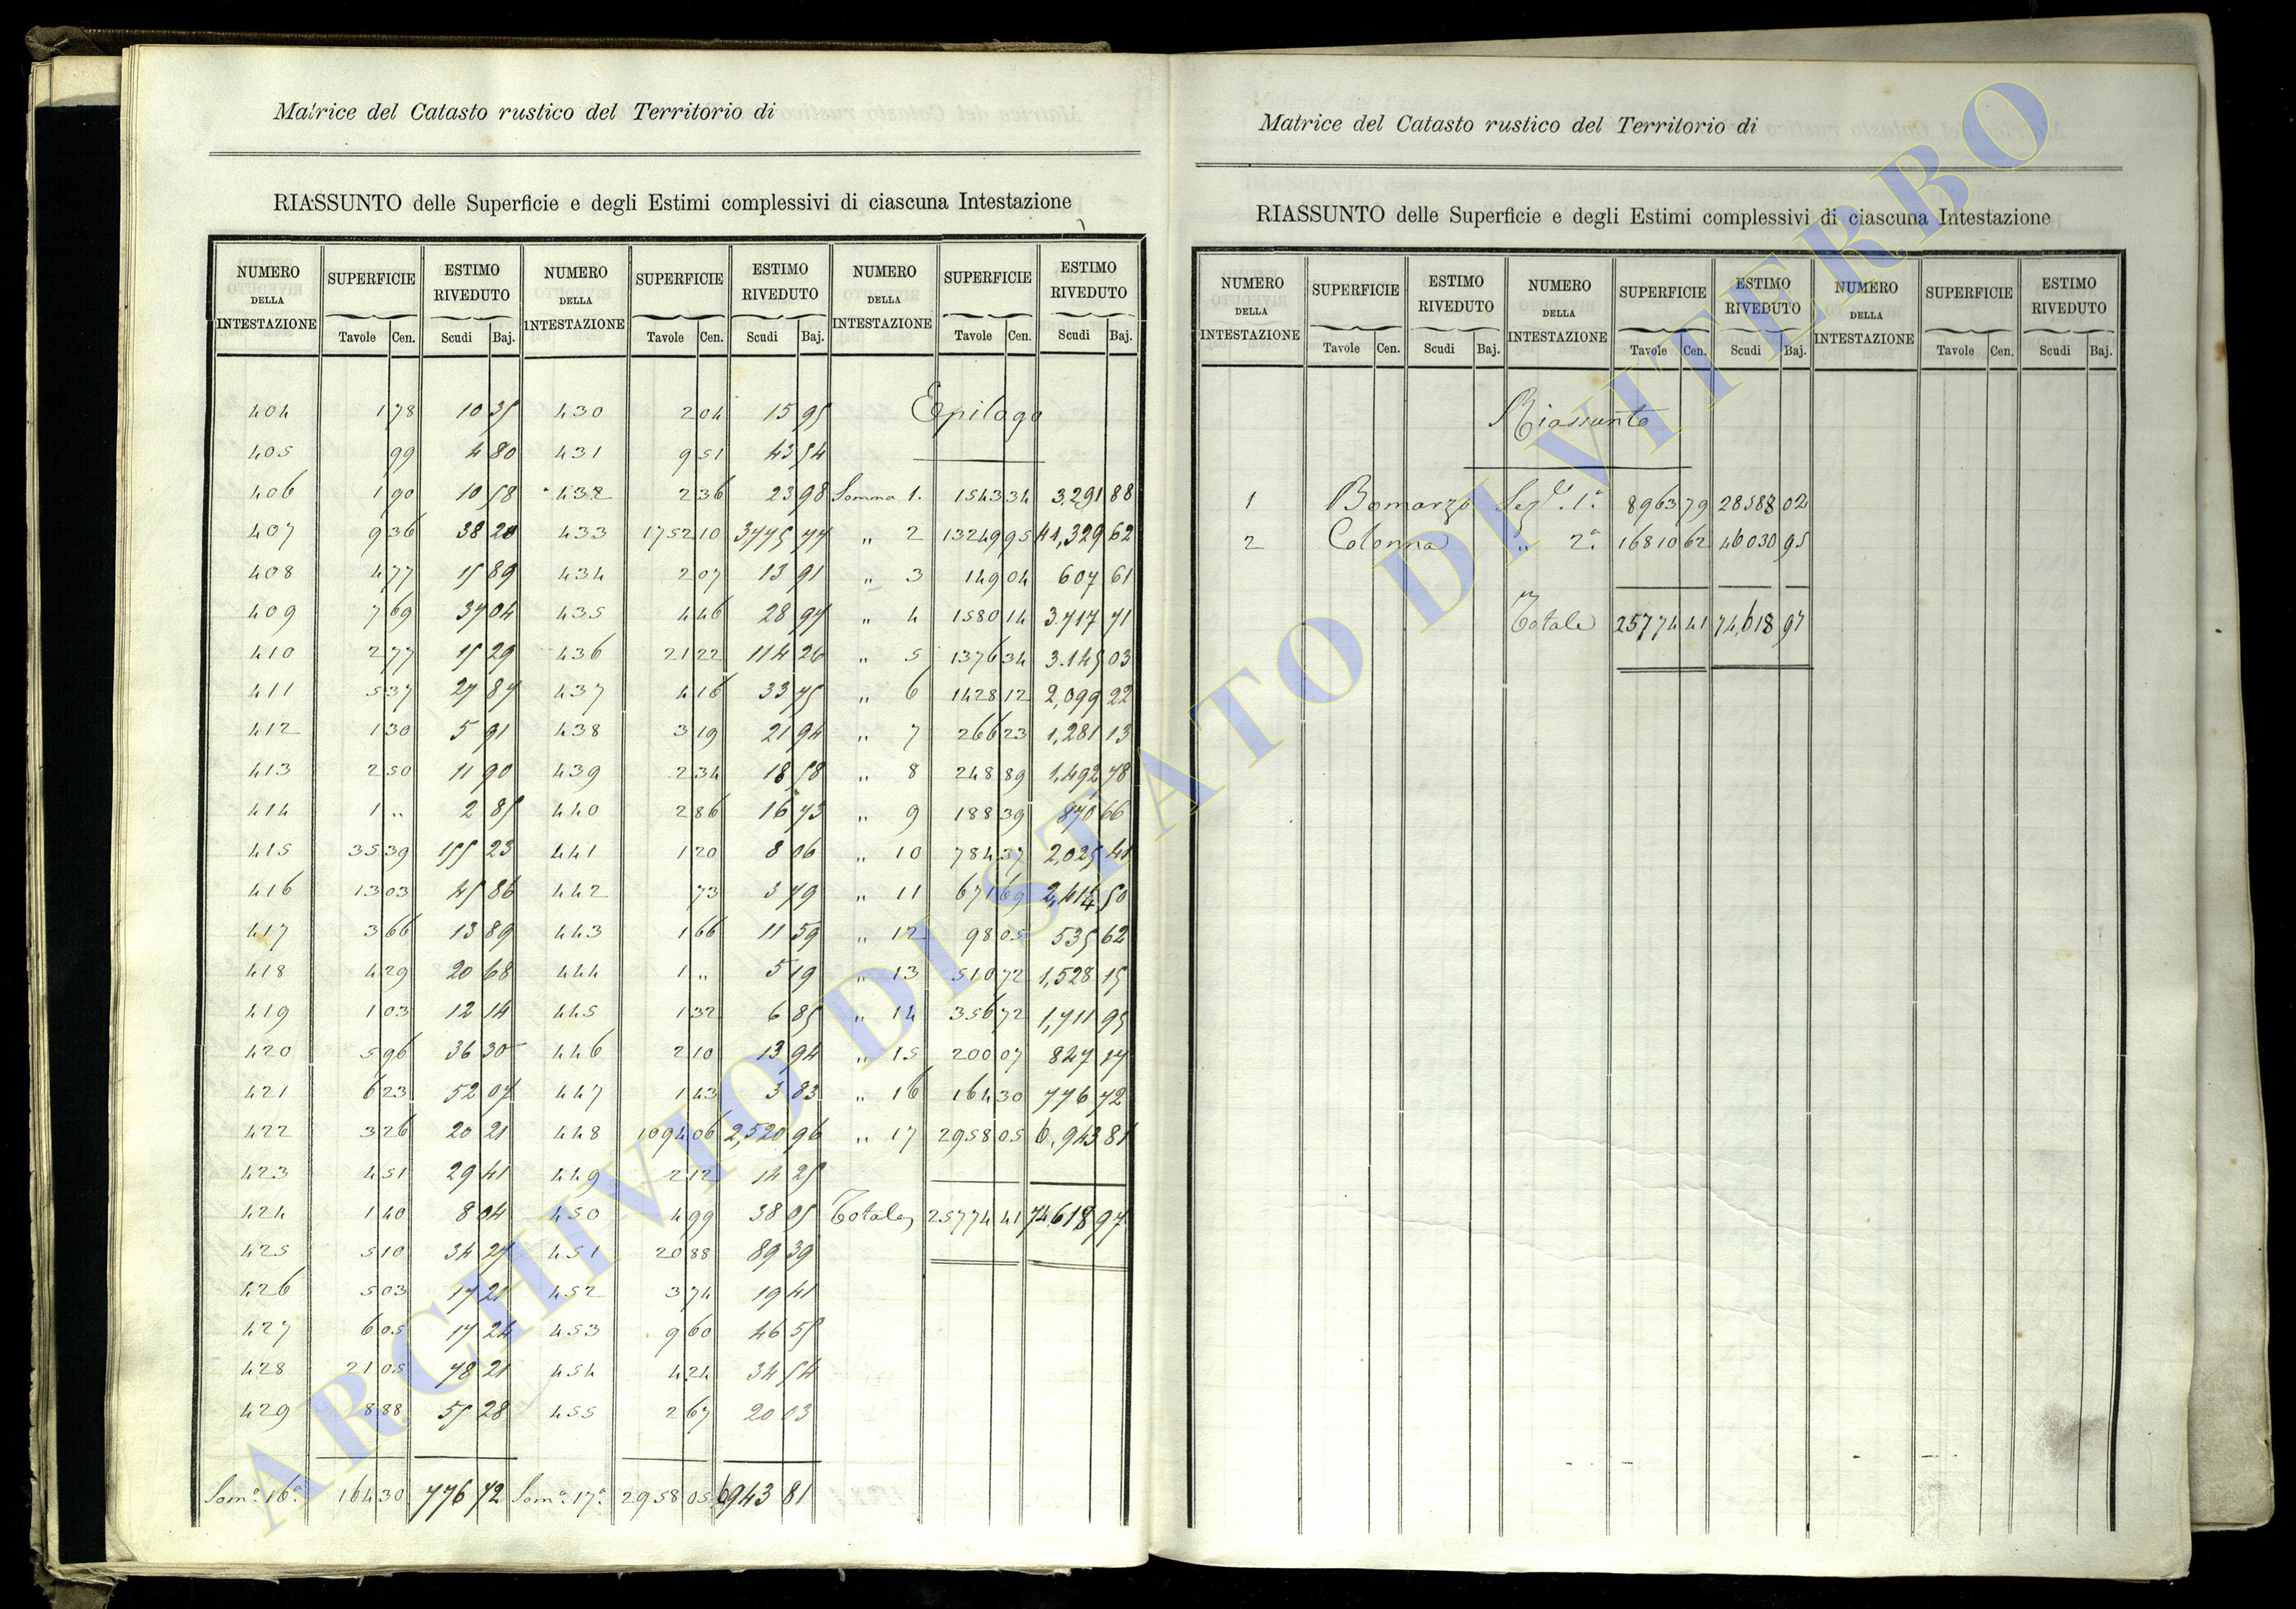 Matrice del Catasto rustico del Territorio di
RIASSUNTO delle Superficie e degli Estimi complessivi di ciascuna Intestazione
NUMERO DELLA INTESTAZIONE SUPERFICIE ESTIMO RIVEDUTO NUMERO DELLA INTESTAZIONE SUPERFICIE ESTIMO RIVEDUTO NUMERO DELLA INTESTAZIONE SUPERFICIE ESTIMO RIVEDUTO
Tavole Cen. Scudi Baj. Tavole Cen. Scudi Baj. Tavole Cen. Scudi Baj.
404 1 78 10 35 430 2 04 15 95 Epilogo
405 99 4 80 431 9 51 43 54
406 1 90 10 58 432 2 36 23 98 Somma 1. 1543 34 3,291 88
407 9 36 38 20 433 1752 10 3775 77 " 2 13249 95 41,329 62
408 4 77 15 89 434 2 07 13 91 " 3 149 04 607 61
409 7 69 37 04 435 4 46 28 97 " 4 1580 14 3.717 71
410 2 77 15 29 436 21 22 114 26 " 5 1376 34 3.145 03
411 5 37 27 87 437 4 16 33 75 " 6 1428 12 2,099 22
412 1 30 5 91 438 3 19 21 94 " 7 266 23 1,281 13
413 2 50 11 90 439 2 34 18 58 " 8 248 89 1,492 78
414 1 " 2 85 440 2 86 16 73 " 9 188 39 870 66
415 35 39 155 23 441 1 20 8 06 " 10 784 37 2,025 41
416 13 03 45 86 442 73 3 79 " 11 671 69 2,414 50
417 3 66 13 89 443 1 66 11 59 " 12 98 05 535 62
418 4 29 20 68 444 1 " 5 19 " 13 510 72 1,528 15
419 1 03 12 14 445 1 32 6 85 " 14 356 72 1,711 95
420 5 96 36 30 446 2 10 13 94 " 15 200 07 847 17
421 6 23 52 07 447 1 43 3 83 " 16 164 30 776 72
422 3 26 20 21 448 1094 06 2,520 96 " 17 2958 05 6,943 81
423 4 51 29 41 449 2 12 14 25
424 1 40 8 04 450 4 99 38 05 Totale 25774 41 74,618 97
425 5 10 34 27 451 20 88 89 39
426 5 03 17 21 452 3 74 19 41
427 6 05 17 24 453 9 60 46 55
428 21 05 78 21 454 4 24 34 54
429 8 88 55 28 455 2 67 20 03
Som.a 16.a 164 30 776 72 Som.a 17.a 2958 05 6943 81
Matrice del Catasto rustico del Territorio di
RIASSUNTO delle Superficie e degli Estimi complessivi di ciascuna Intestazione
NUMERO DELLA INTESTAZIONE SUPERFICIE ESTIMO RIVEDUTO NUMERO DELLA INTESTAZIONE SUPERFICIE ESTIMO RIVEDUTO NUMERO DELLA INTESTAZIONE SUPERFICIE ESTIMO RIVEDUTO
Tavole Cen. Scudi Baj. Tavole Cen. Scudi Baj. Tavole Cen. Scudi Baj.
Riassunto
1 Bomarzo Sez.e 1.a 8963 79 28588 02
2 Colonna " 2.a 16810 62 46030 95
Totale 25774 41 74,618 97
ARCHIVIO DI STATO DI VITERBO